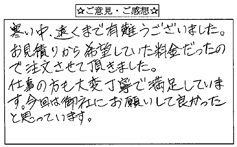 ☆ご意見・ご感想☆
暑い中、遠くまで有難うございました。
お見積りから希望していた料金だったの
で注文させて頂きました。
仕事の方も大変丁寧で満足していま
す。今回は御社にお願いして良かった
と思っています。